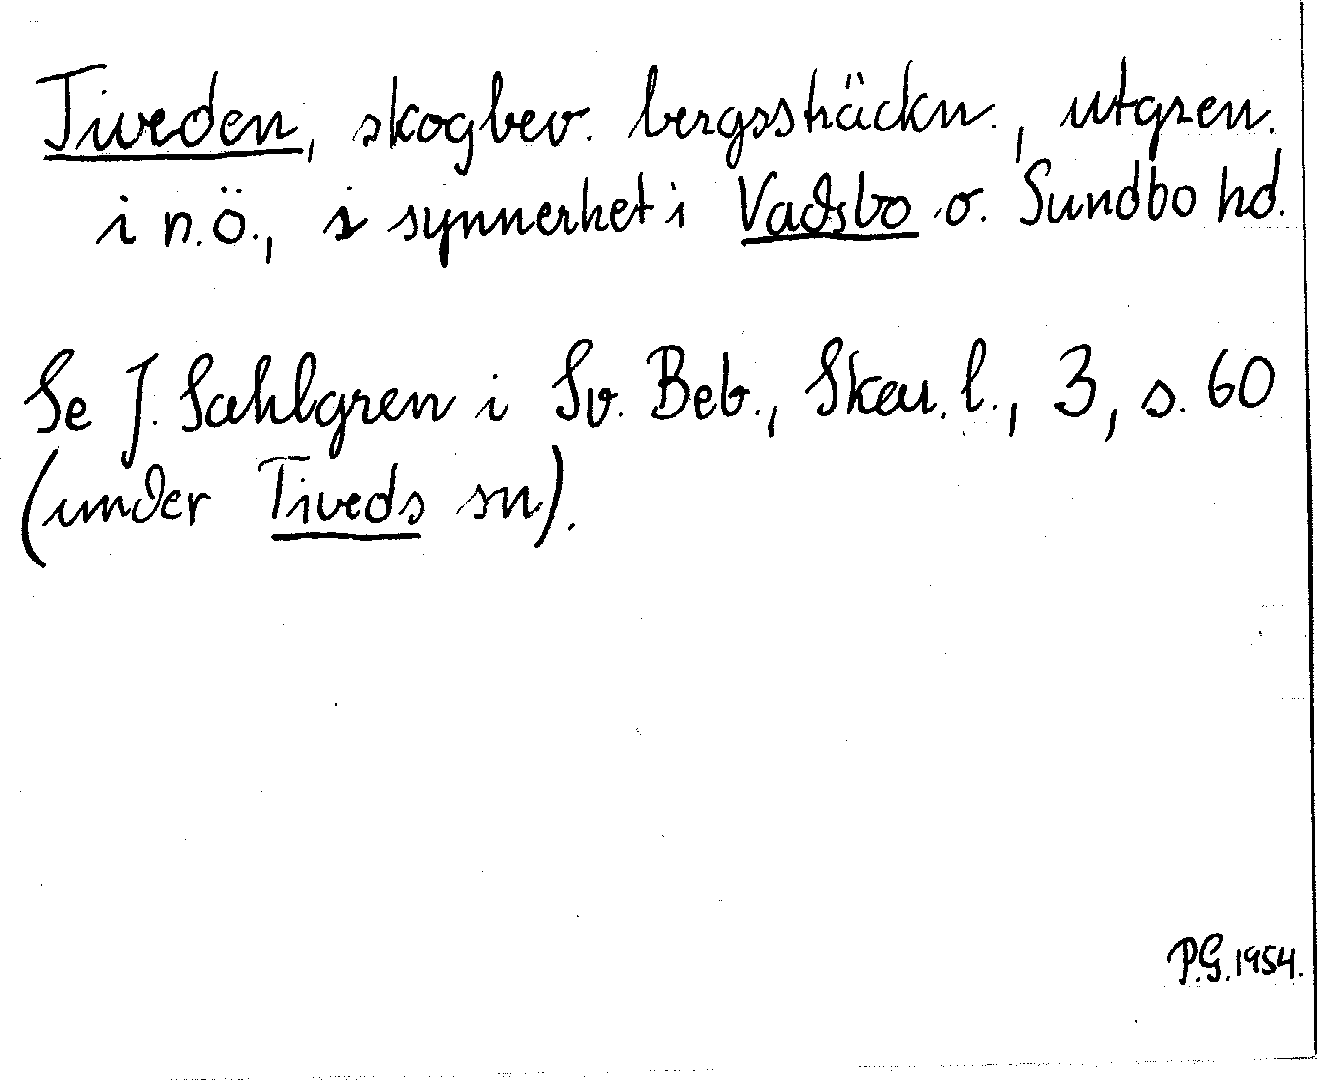 Tiveden, skogbev. bergssträckn., utgren.
i n.ö., i synnerhet i Vadsbo o. Sundbo hd.
Se J. Sahlgren i Sv. Beb., Skar. l., 3, s. 60
(under Tiveds sn).
P.G. 1954.